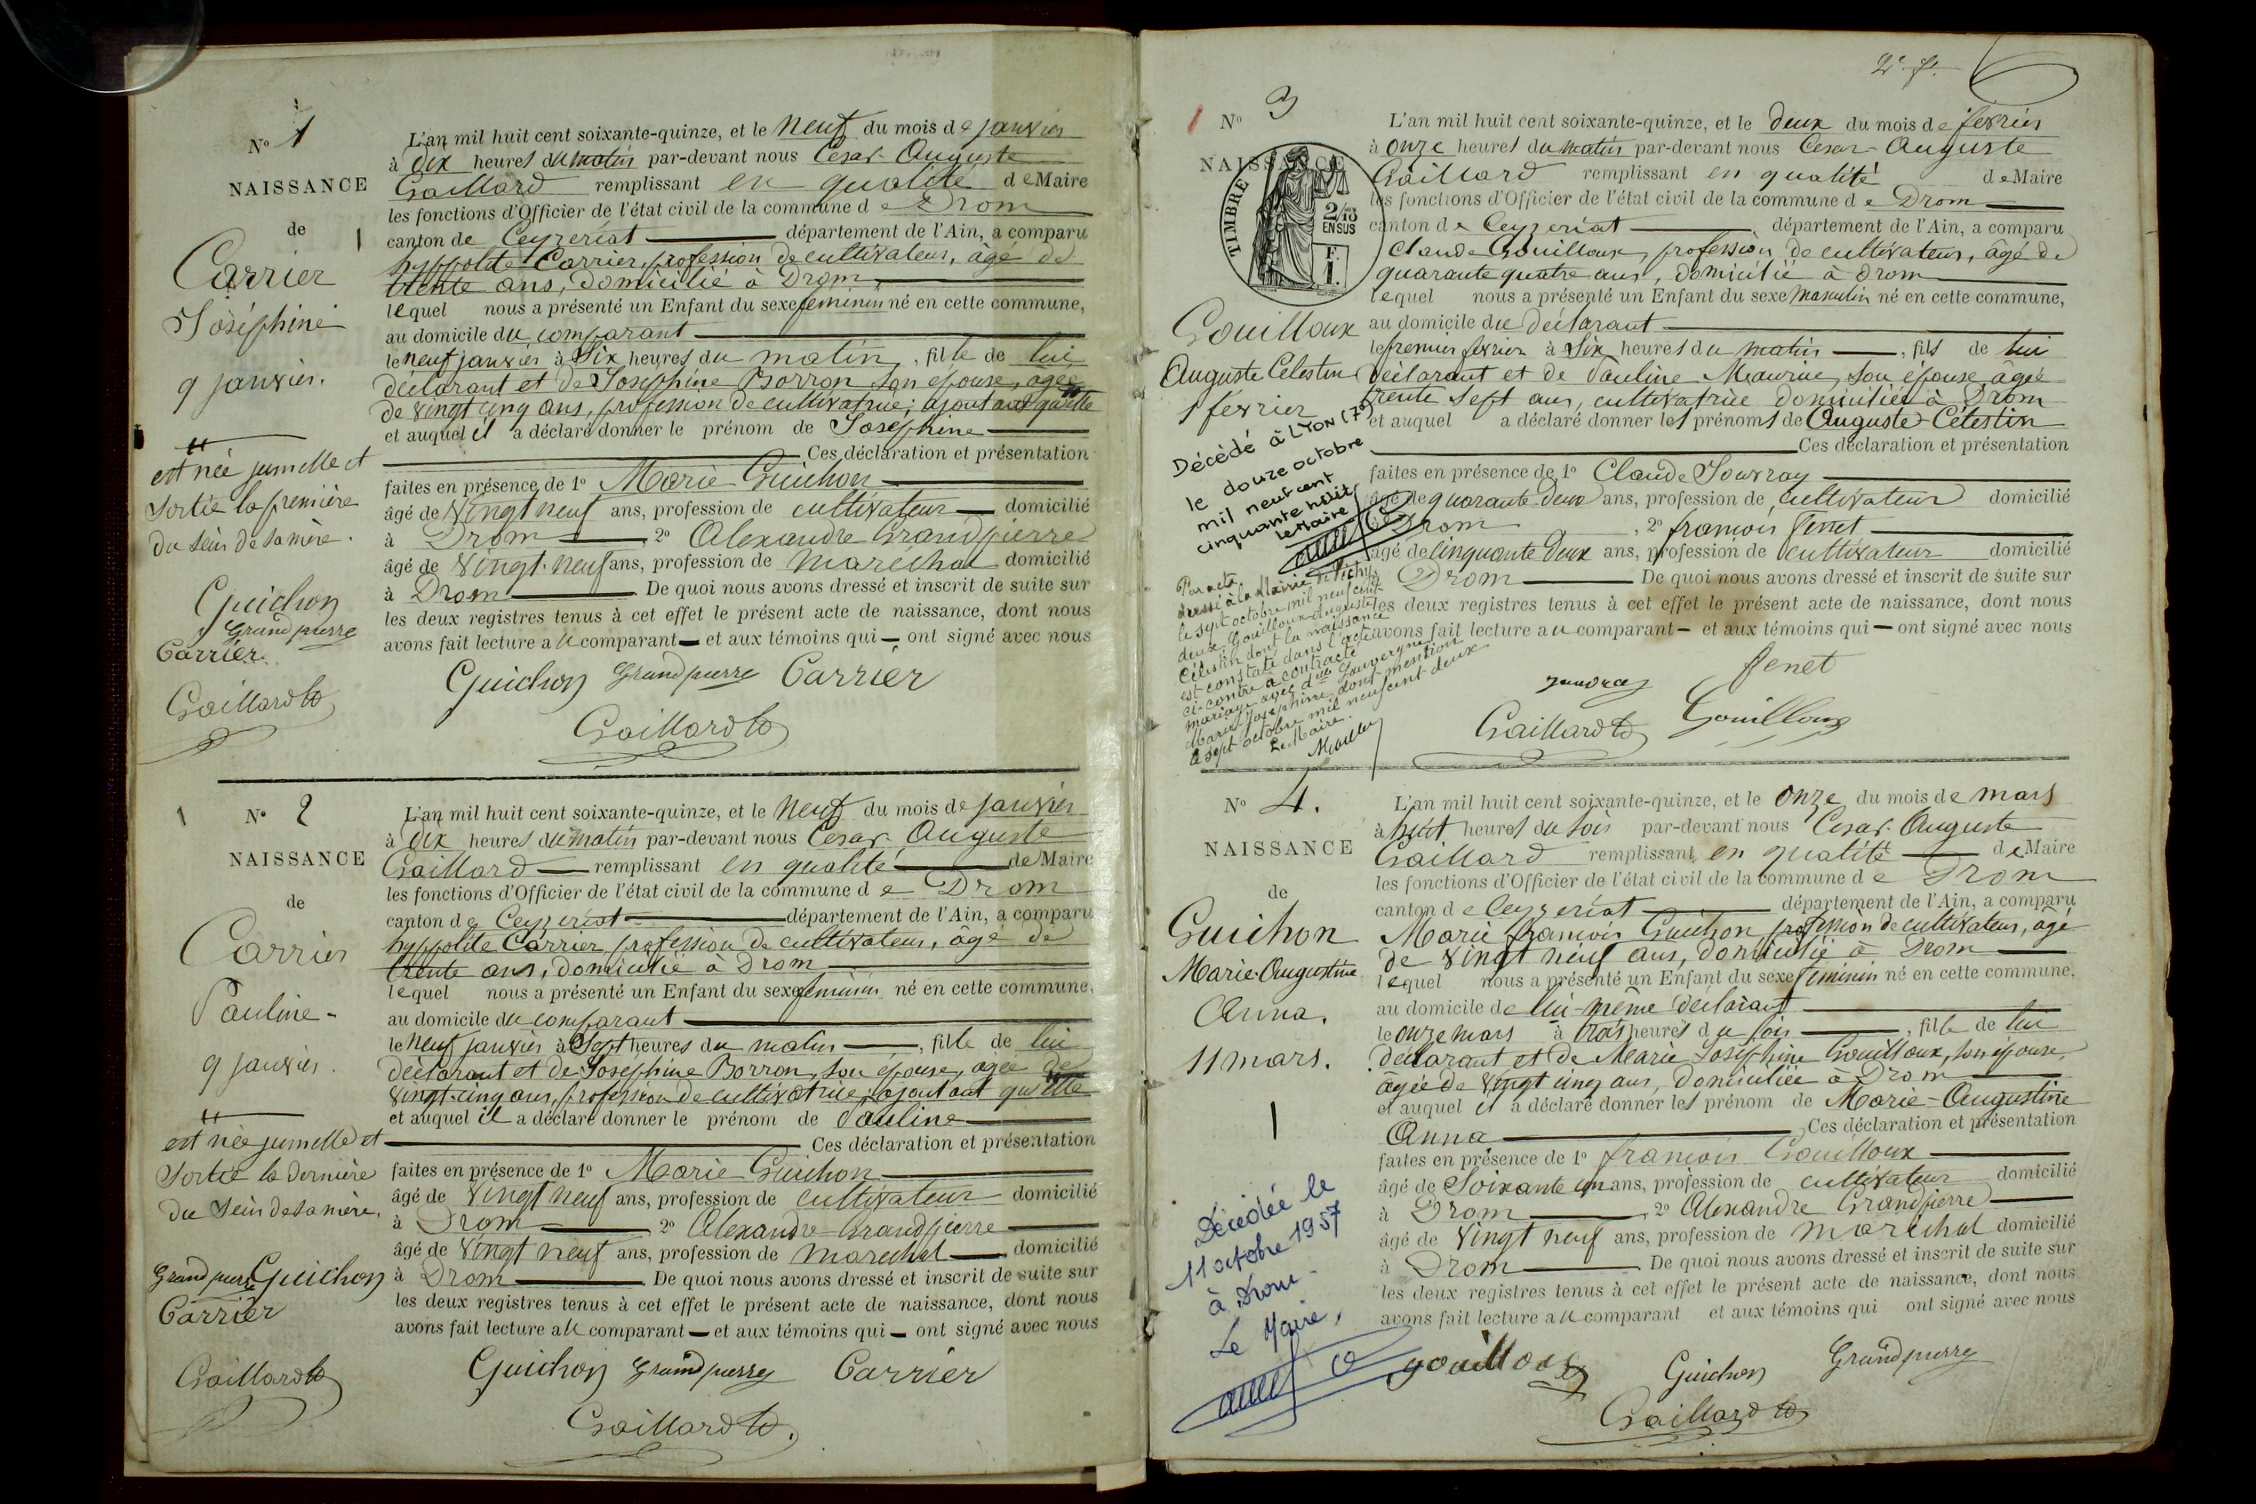 N° 1
NAISSANCE
de
Carrier
Joséphine
9 janvier.
est née jumelle et
sortie la première
du sein de sa mère.
Guichon
Grandpierre
Carrier
Gaillard
L'an mil huit cent soixante-quinze, et le neuf du mois de janvier
à dix heures du matin par-devant nous César-Auguste
Gaillard remplissant en qualité de Maire
les fonctions d'Officier de l'état civil de la commune de Drom
canton de Ceyzeriat département de l'Ain, a comparu
hyppolite Carrier, profession de cultivateur, âgé de
trente ans, domicilié à Drom
lequel nous a présenté un Enfant du sexe féminin né en cette commune,
au domicile du comparant
le neuf janvier à Six heures du matin, fille de lui
déclarant et de Joséphine Borron son épouse, agée
de vingt cinq ans, profession de cultivatrice; ajoutant qu'elle
et auquel il a déclaré donner le prénom de Joséphine
Ces déclaration et présentation
faites en présence de 1° Marie Guichon
âgé de vingt neuf ans, profession de cultivateur domicilié
à Drom 2° Alexandre Grandpierre
âgé de vingt-neuf ans, profession de maréchal domicilié
à Drom De quoi nous avons dressé et inscrit de suite sur
les deux registres tenus à cet effet le présent acte de naissance, dont nous
avons fait lecture au comparant et aux témoins qui ont signé avec nous
Guichon Grandpierre Carrier
Gaillard
1 N° 2
NAISSANCE
de
Carrier
Pauline
9 janvier.
est née jumelle et
sortie la dernière
du sein de sa mère.
Grandpierre Guichon
Carrier
Gaillard
L'an mil huit cent soixante-quinze, et le neuf du mois de janvier
à dix heures du matin par-devant nous César-Auguste
Gaillard remplissant en qualité de Maire
les fonctions d'Officier de l'état civil de la commune de Drom
canton de Ceyzeriat département de l'Ain, a comparu
hyppolite Carrier profession de cultivateur, âgé de
trente ans, domicilié à Drom
lequel nous a présenté un Enfant du sexe féminin né en cette commune,
au domicile du comparant
le neuf janvier à Sept heures du matin, fille de lui
déclarant et de Joséphine Borron, son épouse, agée de
vingt-cinq ans, profession de cultivatrice; ajoutant qu'elle
et auquel il a déclaré donner le prénom de Pauline
Ces déclaration et présentation
faites en présence de 1° Marie Guichon
âgé de vingt neuf ans, profession de cultivateur domicilié
à Drom 2° Alexandre Grandpierre
âgé de vingt neuf ans, profession de maréchal domicilié
à Drom De quoi nous avons dressé et inscrit de suite sur
les deux registres tenus à cet effet le présent acte de naissance, dont nous
avons fait lecture au comparant et aux témoins qui ont signé avec nous
Guichon Grandpierre Carrier
Gaillard
2e f.
N° 3
NAISSANCE
TIMBRE
2/10
EN SUS
F.
1.
Gouilloux
Auguste Célestin
1 février
Décédé à LYON (7e)
le douze octobre
mil neuf cent
cinquante huit
le Maire
Par acte
dressé à la Mairie de Vichy
le sept octobre mil neuf cent
deux, Gouilloux Auguste
Célestin dont la naissance
est constaté dans l'acte
ci-contre a contracté
mariage avec dlle Gouvergneur
Marie Joséphine dont mention
le sept octobre mil neuf cent deux
Le Maire.
L'an mil huit cent soixante-quinze, et le deux du mois de février
à onze heures du matin par-devant nous César-Auguste
Gaillard remplissant en qualité de Maire
les fonctions d'Officier de l'état civil de la commune de Drom
canton de Ceyzeriat département de l'Ain, a comparu
Claude Gouilloux, profession de cultivateur, âgé de
quarante quatre ans, domicilié à Drom
lequel nous a présenté un Enfant du sexe masculin né en cette commune,
au domicile du déclarant
le premier février à Six heures du matin, fils de lui
déclarant et de Pauline Maurine, son épouse âgée
trente sept ans, cultivatrice domiciliée à Drom
et auquel a déclaré donner les prénoms de Auguste-Célestin
Ces déclaration et présentation
faites en présence de 1° Claude Jouvray
âgé de quarante-deux ans, profession de cultivateur domicilié
Drom, 2° françois fenet
âgé de cinquante deux ans, profession de cultivateur domicilié
Drom De quoi nous avons dressé et inscrit de suite sur
les deux registres tenus à cet effet le présent acte de naissance, dont nous
avons fait lecture au comparant et aux témoins qui ont signé avec nous
Jouvray fenet
Gaillard Gouilloux
N° 4.
NAISSANCE
de
Guichon
Marie-Augustine
Anna.
11 mars.
1
Décédée le
11 octobre 1957
à Drom -
Le Maire,
L'an mil huit cent soixante-quinze, et le onze du mois de mars
à huit heures du soir par-devant nous César-Auguste
Gaillard remplissant en qualité de Maire
les fonctions d'Officier de l'état civil de la commune de Drom
canton de Ceyzeriat département de l'Ain, a comparu
Marie françois Guichon profession de cultivateur, âgé
de vingt neuf ans, domicilié à Drom
lequel nous a présenté un Enfant du sexe féminin né en cette commune,
au domicile de lui-même déclarant
le onze mars à trois heures du soir, fille de lui
déclarant et de Marie Joséphine Gouilloux, son épouse,
âgée de vingt cinq ans, domiciliée à Drom
et auquel il a déclaré donner les prénom de Marie-Augustine
Anna Ces déclaration et présentation
faites en présence de 1° françois Gouilloux
âgé de Soixante un ans, profession de cultivateur domicilié
à Drom, 2° Alexandre Grandpierre
âgé de vingt neuf ans, profession de maréchal domicilié
à Drom De quoi nous avons dressé et inscrit de suite sur
les deux registres tenus à cet effet le présent acte de naissance, dont nous
avons fait lecture au comparant et aux témoins qui ont signé avec nous
gouilloux Guichon Grandpierre
Gaillard